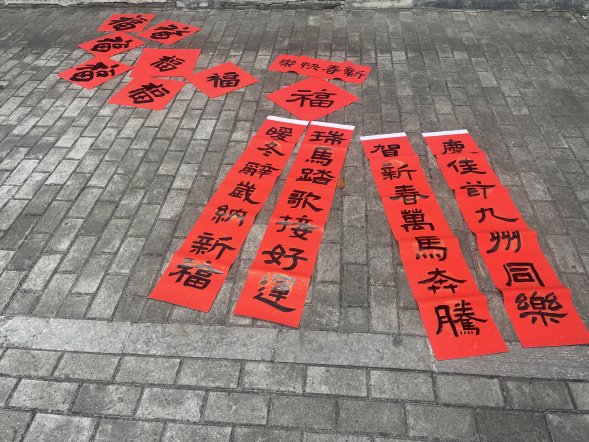 福
福
福
福
福
福
福
新春快樂
福
瑞馬踏歌接好運
暖冬辭歲納新福
慶佳節九州同樂
賀新春萬馬奔騰